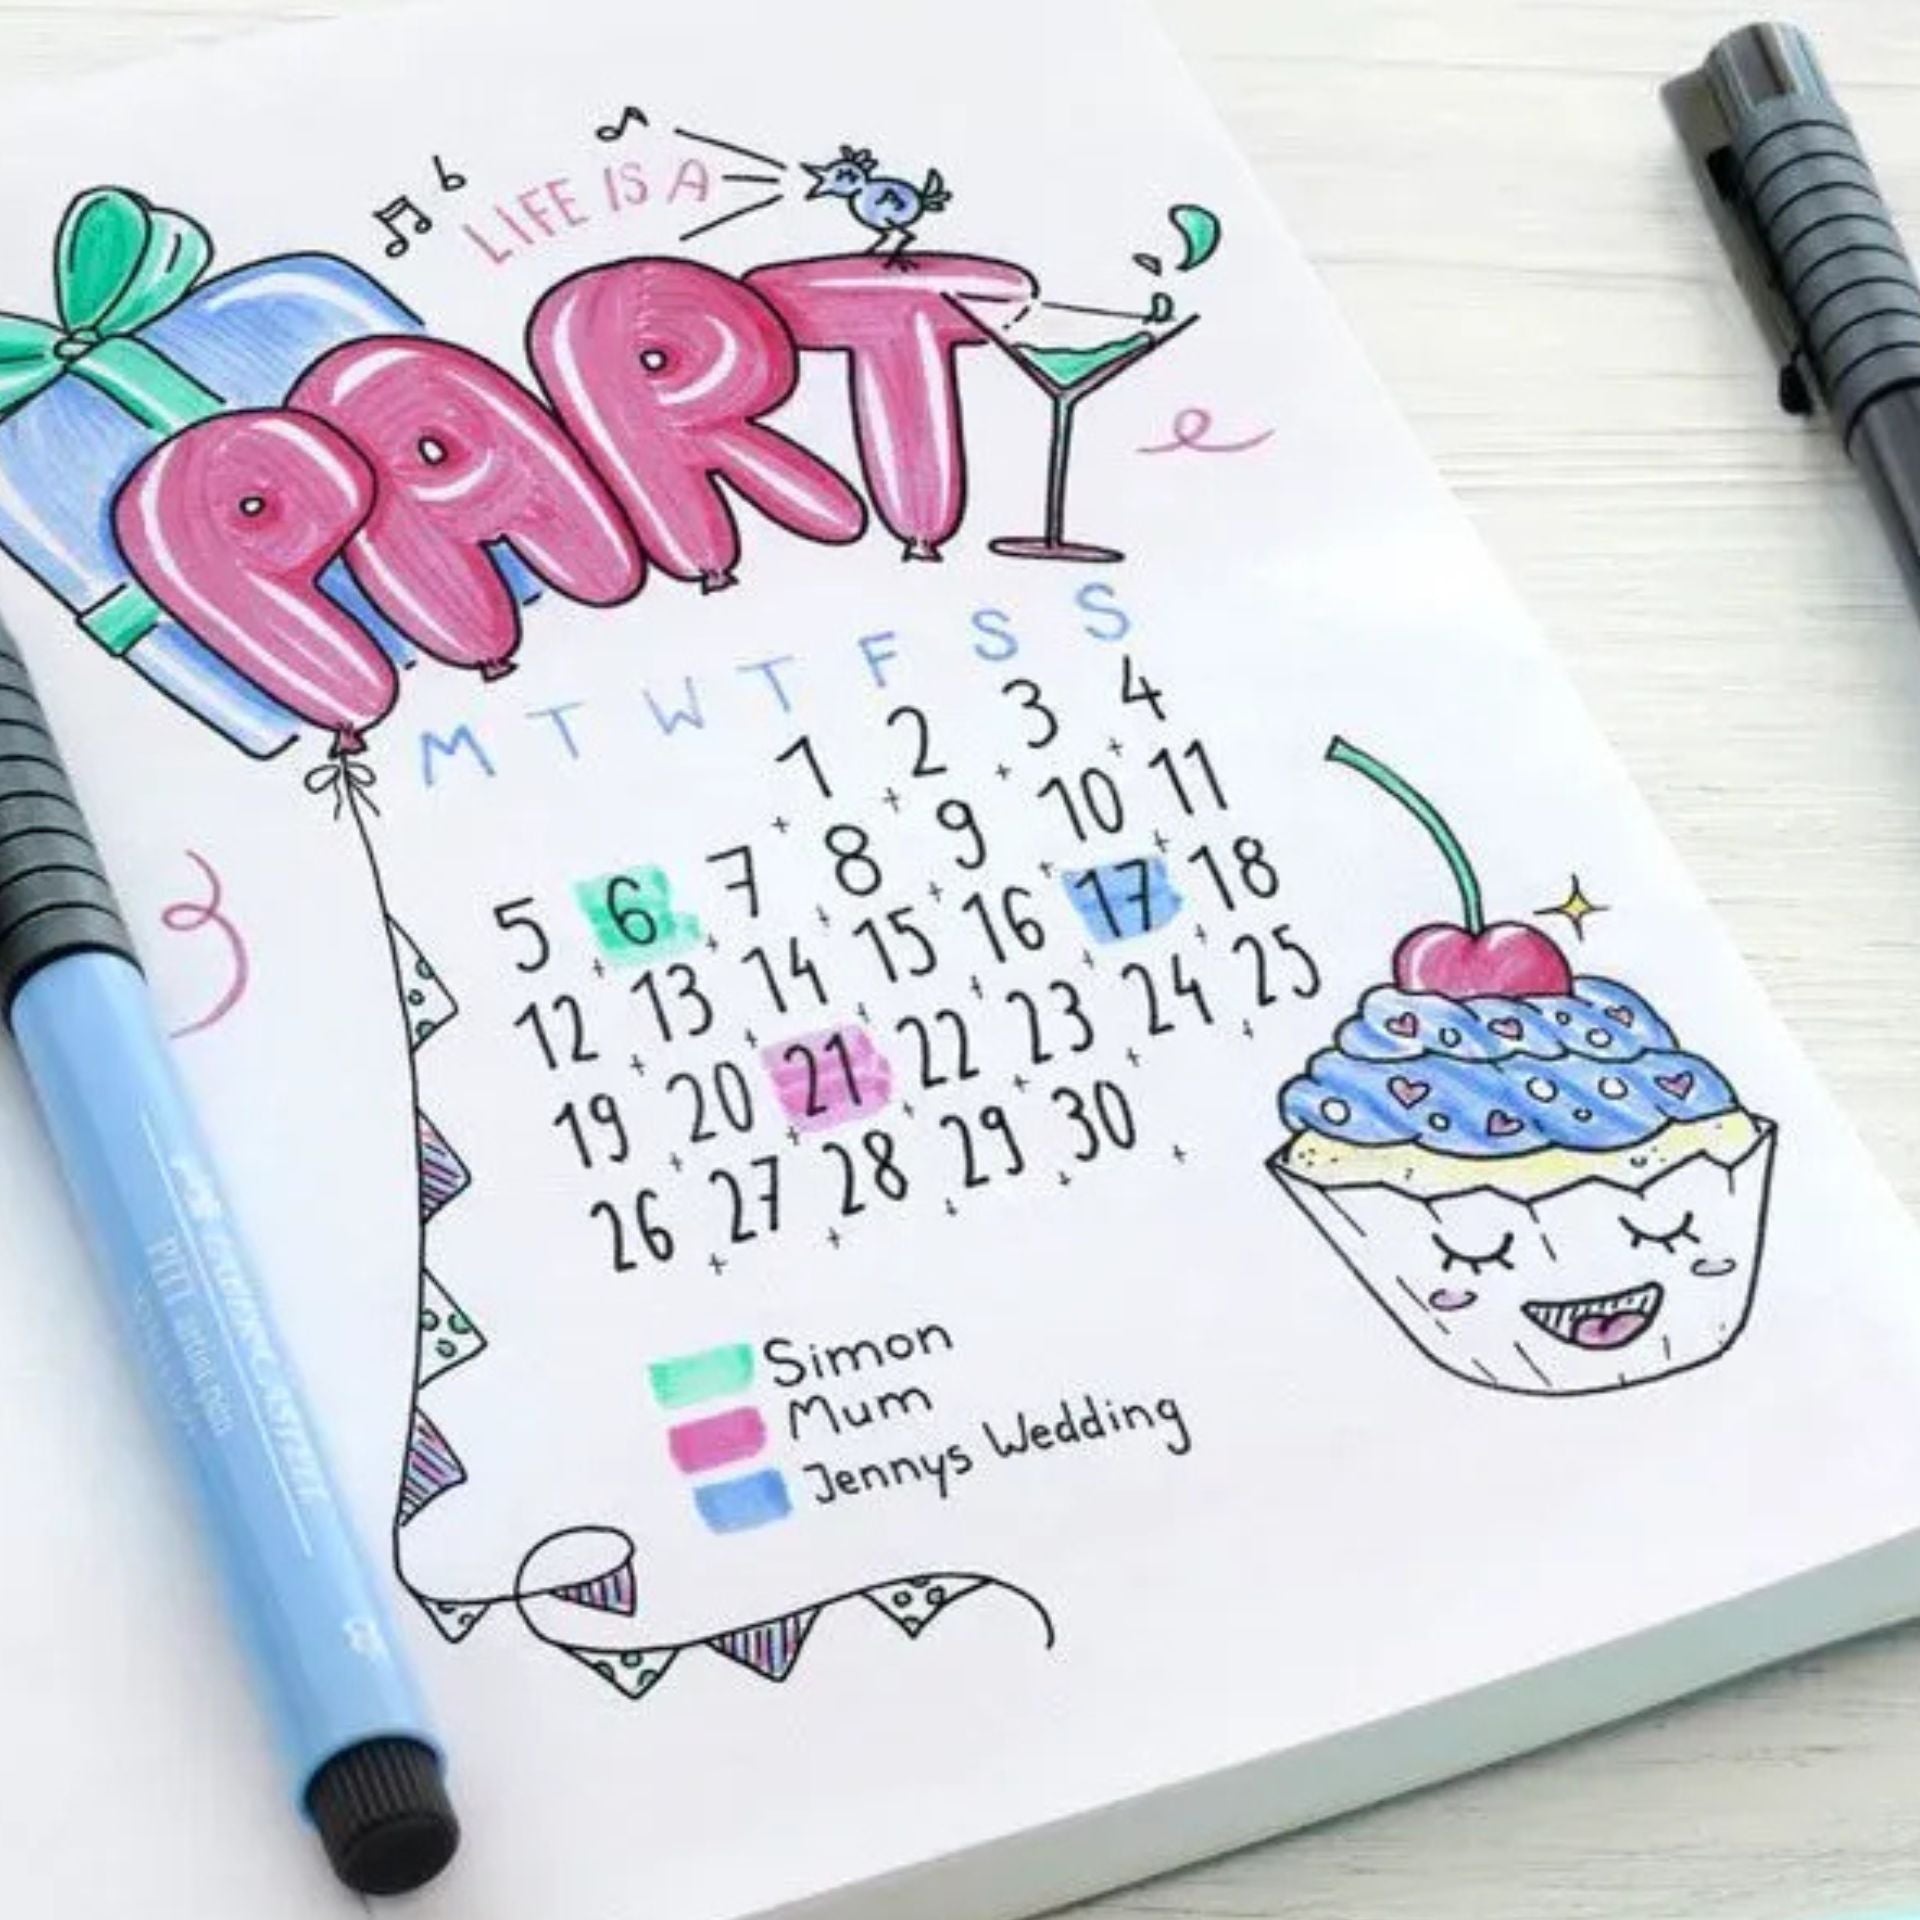 LIFE IS A
PART
M T W T F S S
1 2 3 4
5 6 7 8 9 10 11
12 13 14 15 16 17 18
19 20 21 22 23 24 25
26 27 28 29 30
Simon
Mum
Jennys Wedding
FABER-CASTELL
PITT artist pen